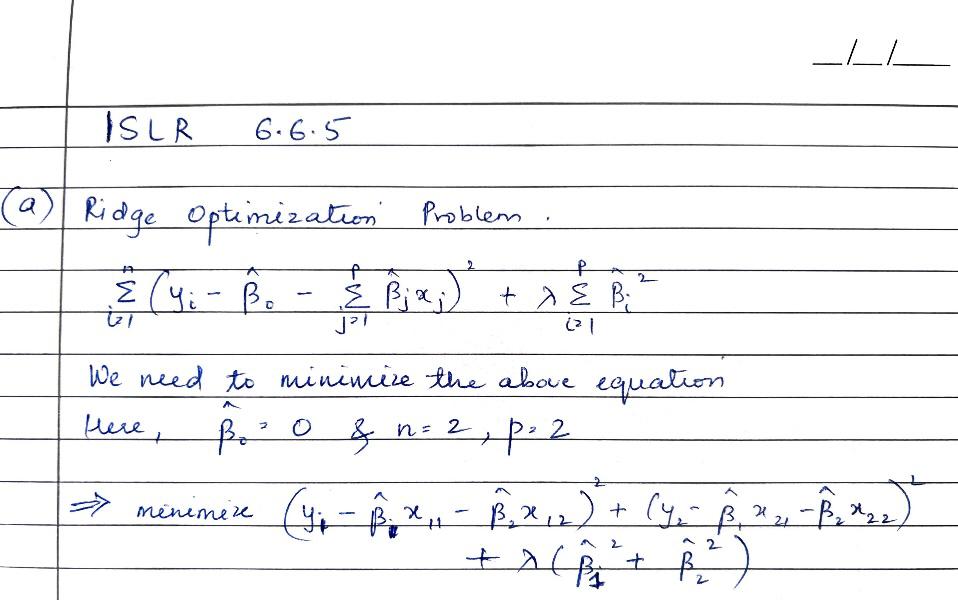 __/__/____
ISLR 6.6.5
(a) Ridge Optimization Problem.
n Σ i=1 (yᵢ - β̂₀ - p Σ j=1 β̂ⱼxⱼ)² + λ p Σ i=1 β̂ᵢ²
We need to minimize the above equation
Here, β̂₀ = 0 & n=2, p=2
⇒ minimize (y₁ - β̂₁x₁₁ - β̂₂x₁₂)² + (y₂ - β̂₁x₂₁ - β̂₂x₂₂)²
+ λ(β̂₁² + β̂₂²)